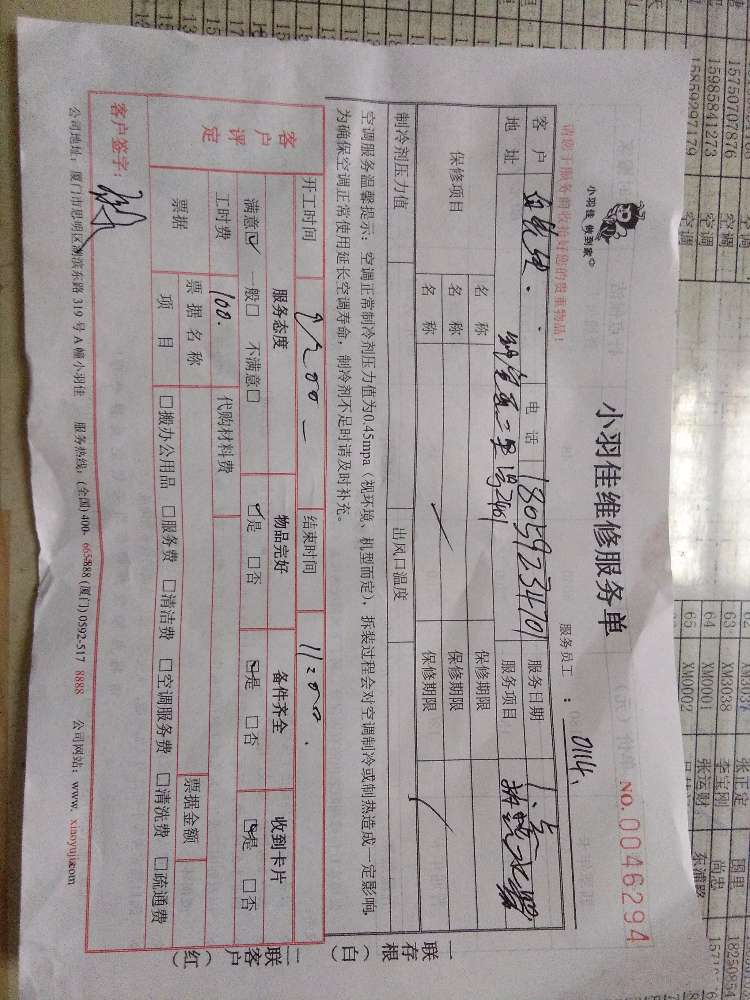 小羽佳 做到家
小羽佳维修服务单
NO. 0046294
请您于服务前收拾好您的贵重物品！
服务员工：0114.
客户 电话 18059234701 服务日期
地址 服务项目
保修项目 名称 保修期限
名称 保修期限
名称 保修期限
制冷剂压力值 出风口温度
空调服务温馨提示：空调正常制冷剂压力值为0.45mpa（视环境、机型而定），拆装过程会对空调制冷或制热造成一定影响，
为确保空调正常使用延长空调寿命，制冷剂不足时请及时补充。
开工时间 结束时间 11:00.
客户评定 服务态度 物品完好 备件齐全 收到卡片
满意☑ 一般□ 不满意□ ☑是 □否 ☑是 □否 ☑是 □否
工时费 100. 代购材料费
票据 票据名称 票据金额
项目 □搬办公用品 □服务费 □清洁费 □空调服务费 □清洗费 □疏通费
客户签字：
公司地址：厦门市思明区湖滨东路 319 号 A 幢小羽佳 服务热线：(全国)400-6658888 (厦门)0592-517 8888 公司网站：www.xiaoyujia.com
一联存根（白）
二联客户（红）
15750707876 空调
15985841273 空调
15859297179 空调
63 XM3038 李宝刚
64 XM0001 张运财
65 XM0002
张正定
图里
尚忠
东浦路
18250854